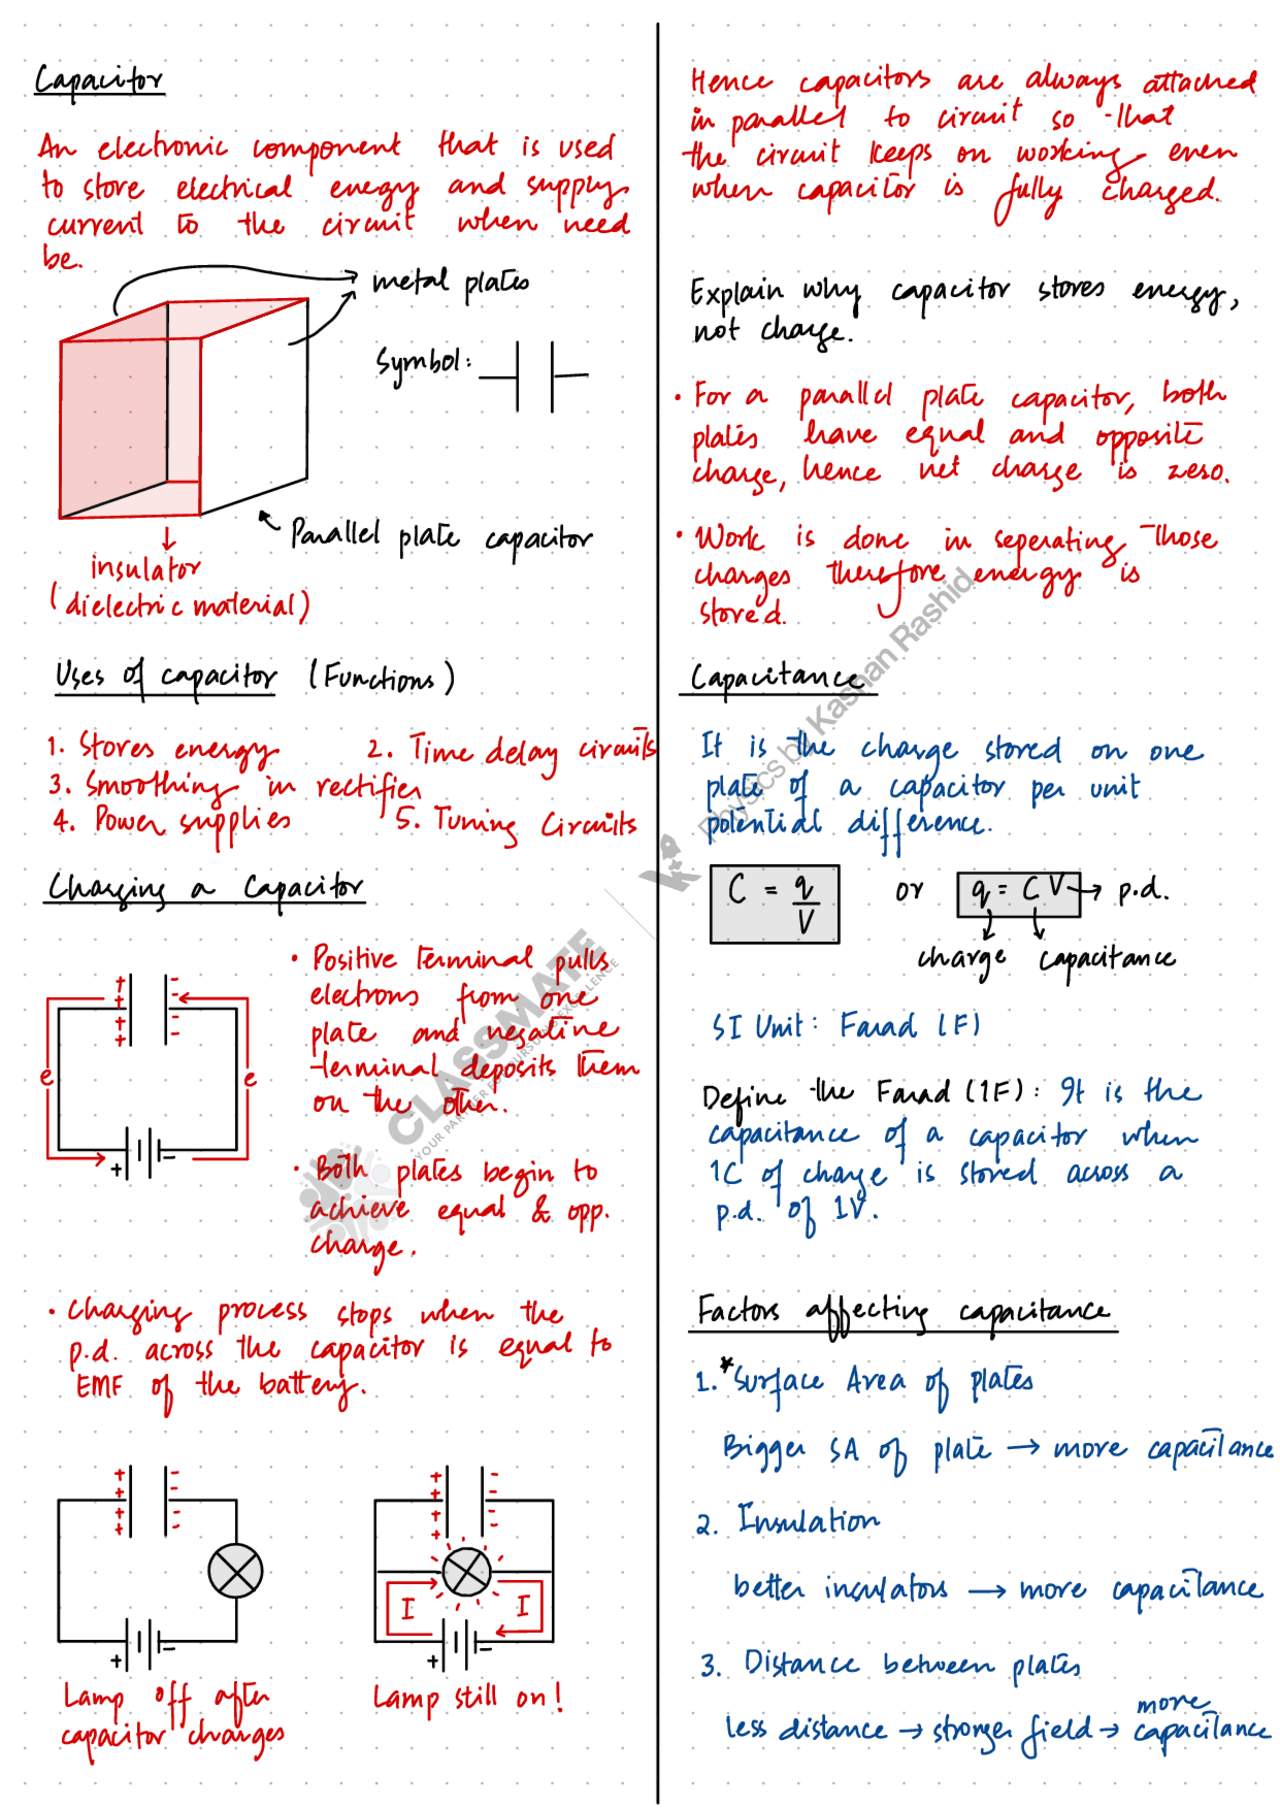 Capacitor
An electronic component that is used
to store electrical enegy and supply
current to the circuit when need
be.
metal plates
Symbol:
Parallel plate capacitor
insulator
(dielectric material)
Uses of capacitor (Functions)
1. Stores energy 2. Time delay circuits
3. Smoothing in rectifier
4. Power supplies 5. Tuning Circuits
Charging a Capacitor
• Positive terminal pulls
electrons from one
plate and negative
terminal deposits them
on the other.
+ + + +
- - - -
e e
+ -
• Both plates begin to
achieve equal & opp.
charge.
• Charging process stops when the
p.d. across the capacitor is equal to
EMF of the battery.
+ + + +
- - - -
+ + + +
- - - -
I I
+ -
+ -
Lamp off after
capacitor charges
Lamp still on!
Hence capacitors are always attached
in parallel to circuit so that
the circuit keeps on working even
when capacitor is fully charged.
Explain why capacitor stores energy,
not charge.
• For a parallel plate capacitor, both
plates have equal and opposite
charge, hence net charge is zero.
• Work is done in seperating those
charges therefore energy is
stored.
Capacitance
It is the charge stored on one
plate of a capacitor per unit
potential difference.
C = q/V or q = CV → p.d.
charge capacitance
SI Unit: Farad (F)
Define the Farad (1F): It is the
capacitance of a capacitor when
1C of charge is stored across a
p.d. of 1V.
Factors affecting capacitance
1. *Surface Area of plates
Bigger SA of plate → more capacitance
2. Insulation
better insulators → more capacitance
3. Distance between plates
less distance → stronger field → more capacitance
Physics by Kashan Rashid
CLASSMATE
YOUR PARTNER FOR PURSUING EXCELLENCE